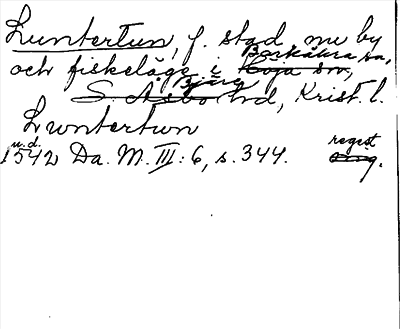 Luntertun, f. stad, nu by
och fiskeläge i Barkåkra sn,
Bjäre hd, Krist. l.
Luntertun
u.d.
1542 Da. M. III: 6, s. 344. regest